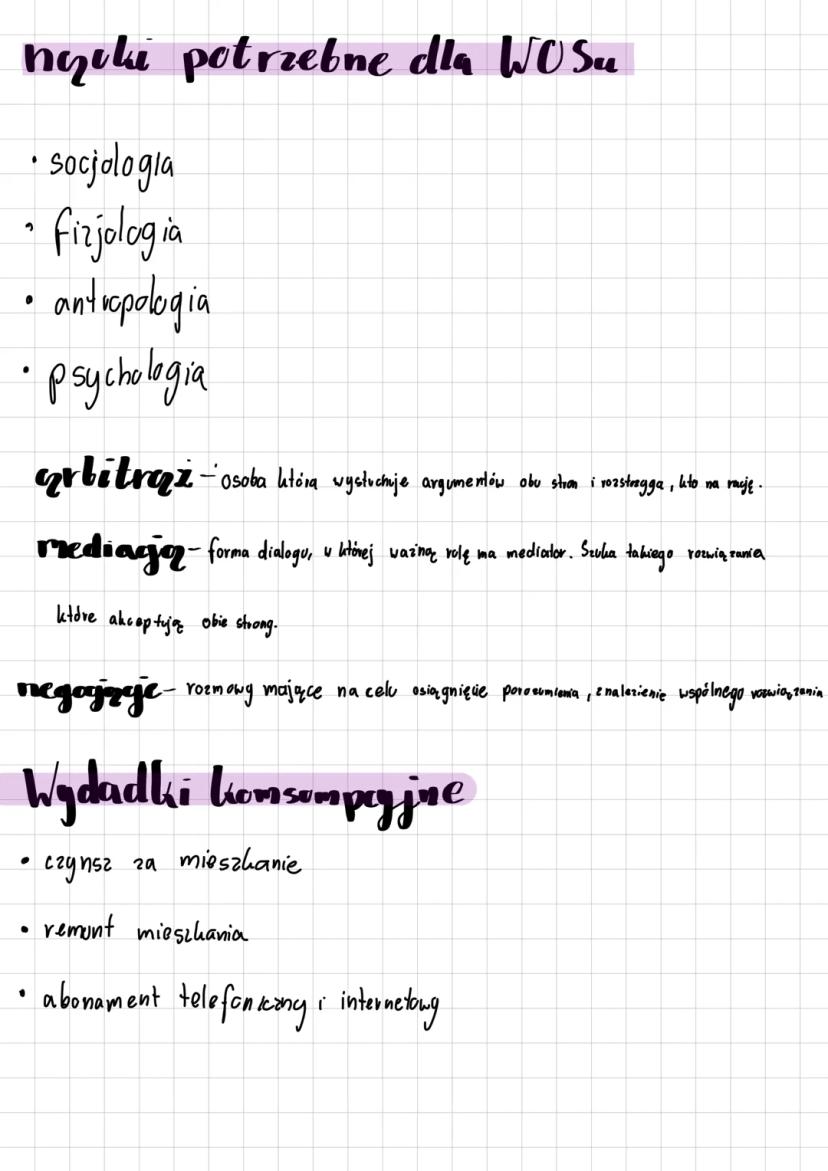 nauki potrzebne dla WOSu
• socjologia
• fizjologia
• antropologia
• psychologia
arbitraż – osoba która wysłuchuje argumentów obu stron i rozstrzyga, kto na rację.
mediacja – forma dialogu, w której ważną rolę ma mediator. Szuka takiego rozwiązania
które akceptują obie strony.
negocjacje – rozmowy mające na celu osiągnięcie porozumienia, znalezienie wspólnego rozwiązania
Wydadki konsumpcyjne
• czynsz za mieszkanie
• remont mieszkania
• abonament telefoniczny i internetowy